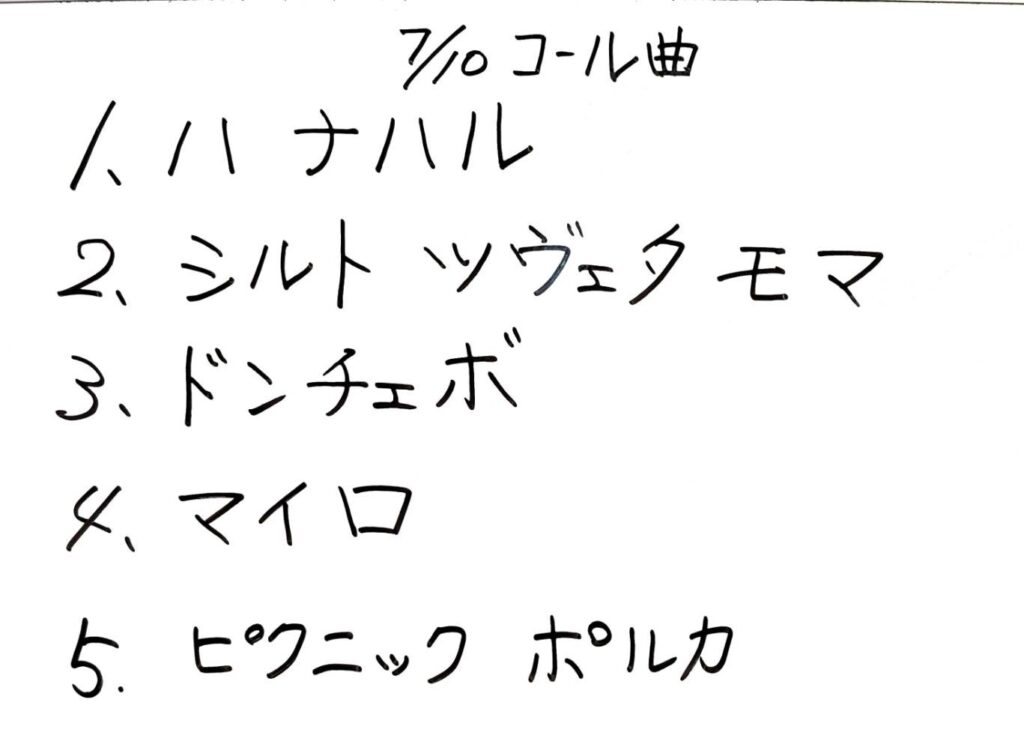 7/10 コール曲
1、ハ ナハル
2、シルト ツヴェタ モマ
3、ドンチェボ
4、マイロ
5. ピクニック ポルカ